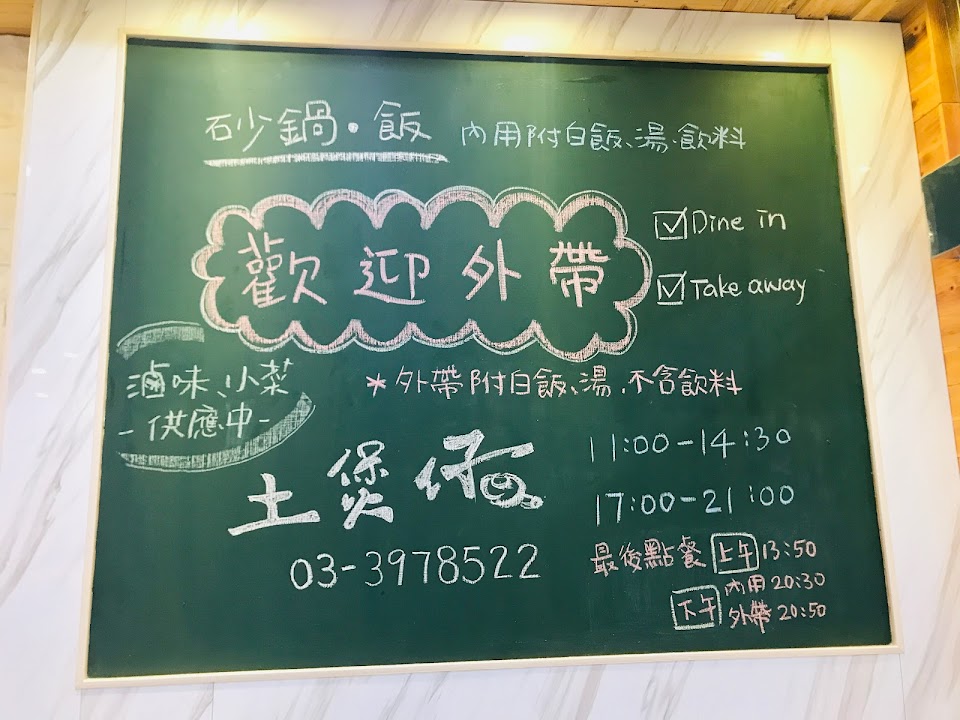 砂鍋·飯
內用附白飯、湯、飲料
歡迎外帶
☑Dine in
☑Take away
滷味、小菜
-供應中-
*外帶附白飯、湯、不含飲料
土煲
03-3978522
11:00-14:30
17:00-21:00
最後點餐 上午 13:50
下午 內用 20:30
外帶 20:50